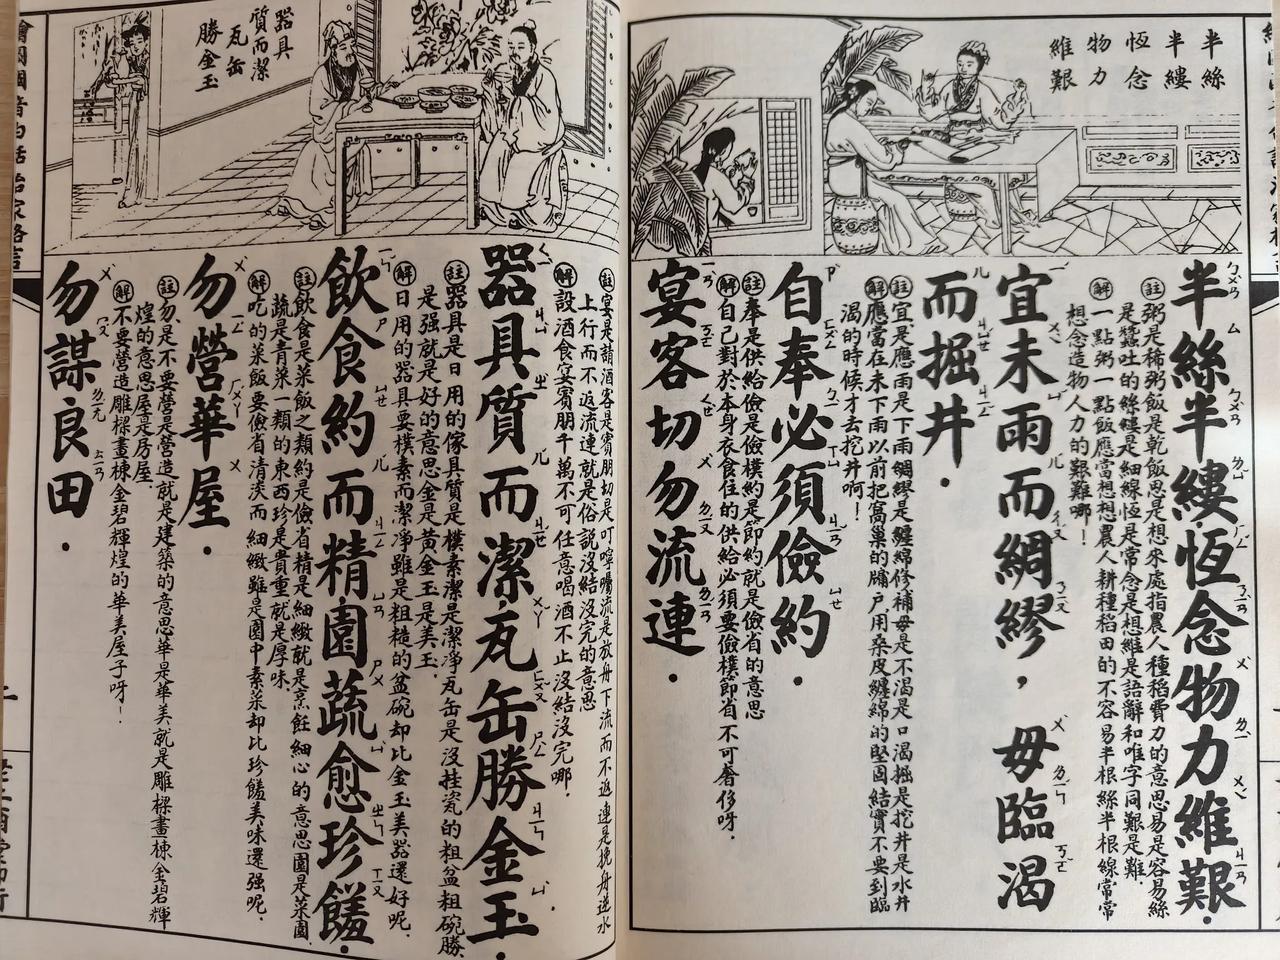 半絲
半縷
恆念
物力
維艱
半絲半縷恆念物力維艱．
註粥是稀粥飯是乾飯思是想來處指農人種稻費力的意思易是容易絲
是蠶吐的絲縷是細線恆是常念是想維是語辭和唯字同艱是難．
解一點粥一點飯應當想想農人耕種稻田的不容易半根絲半根線常常
想念造物人力的艱難哪！
宜未雨而綢繆，毋臨渴
而掘井．
註宜是應雨是下雨綢繆是纏綿修補毋是不渴是口渴掘是挖井是水井
解應當在未下雨以前把窩巢的牗戶用桑皮纏綿的堅固結實不要到臨
渴的時候才去挖井啊！
自奉必須儉約．
註奉是供給儉是儉樸約是節約就是儉省的意思
解自己對於本身衣食住的供給必須要儉樸節省不可奢侈呀．
宴客切勿流連．
註宴是請酒客是賓朋切是叮嚀囑流是放舟下流而不返連是挽舟逆水
上行而不返流連就是俗說沒結沒完的意思
解設酒食宴賓朋千萬不可任意喝酒不止沒結沒完哪．
器具
質而潔
瓦缶
勝金玉
器具質而潔瓦缶勝金玉．
註器具是日用的傢具質是樸素潔是潔淨瓦缶是沒挂瓷的粗盆粗碗勝
是强就是好的意思金是黃金玉是美玉．
解日用的器具要樸素而潔淨雖是粗糙的盆碗却比金玉美器還好呢．
飲食約而精園蔬愈珍饈．
註飲食是菜飯之類約是儉省精是細緻就是烹飪細心的意思園是菜園
蔬是青菜一類的東西珍是貴重就是厚味．
解吃的菜飯要儉省清淡而細緻雖是園中素菜却比珍饈美味還强呢．
勿營華屋．
註勿是不要營是營造就是建築的意思華是華美就是雕樑畫棟金碧輝
煌的意思屋是房屋．
解不要營造雕樑畫棟金碧輝煌的華美屋子呀！
勿謀良田．
繪圖國音白話治家格言
二